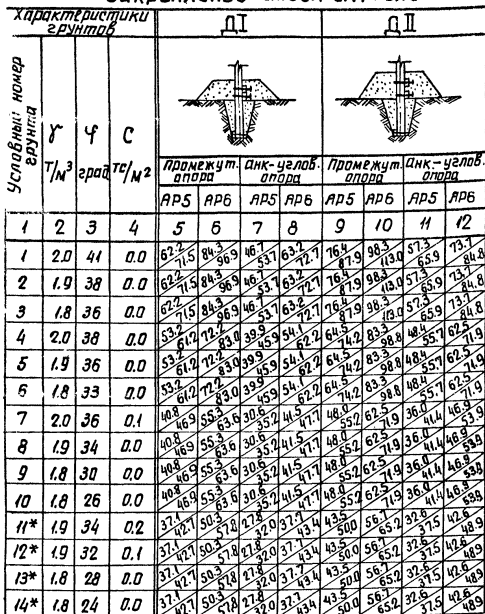 Характеристики грунтов ДI ДII
Условный номер грунта γ Т/м³ φ град. С тс/м² Промежут. опора Анк-углов. опора Промежут. опора Анк.-углов. опора
АР5 АР6 АР5 АР6 АР5 АР6 АР5 АР6
1 2 3 4 5 6 7 8 9 10 11 12
1 2.0 41 0.0 62.2/71.5 84.3/96.9 46.7/53.7 63.2/72.7 76.4/87.9 98.3/113.0 57.3/65.9 73.7/84.8
2 1.9 38 0.0 62.2/71.5 84.3/96.9 46.7/53.7 63.2/72.7 76.4/87.9 98.3/113.0 57.3/65.9 73.7/84.8
3 1.8 36 0.0 62.2/71.5 84.3/96.9 46.7/53.7 63.2/72.7 76.4/87.9 98.3/113.0 57.3/65.9 73.7/84.8
4 2.0 38 0.0 53.2/61.2 72.2/83.0 39.9/45.9 54.1/62.2 64.5/74.2 83.3/98.8 48.4/55.7 62.5/71.9
5 1.9 36 0.0 53.2/61.2 72.2/83.0 39.9/45.9 54.1/62.2 64.5/74.2 83.3/98.8 48.4/55.7 62.5/71.9
6 1.8 33 0.0 53.2/61.2 72.2/83.0 39.9/45.9 54.1/62.2 64.5/74.2 83.3/98.8 48.4/55.7 62.5/71.9
7 2.0 36 0.1 40.8/46.9 55.3/63.6 30.6/35.2 41.5/47.7 48.0/55.2 62.5/71.9 36.0/41.4 46.9/53.9
8 1.9 34 0.0 40.8/46.9 55.3/63.6 30.6/35.2 41.5/47.7 48.0/55.2 62.5/71.9 36.0/41.4 46.9/53.9
9 1.8 30 0.0 40.8/46.9 55.3/63.6 30.6/35.2 41.5/47.7 48.0/55.2 62.5/71.9 36.0/41.4 46.9/53.9
10 1.8 26 0.0 40.8/46.9 55.3/63.6 30.6/35.2 41.5/47.7 48.0/55.2 62.5/71.9 36.0/41.4 46.9/53.9
11* 1.9 34 0.2 37.1/42.7 50.3/57.8 27.8/32.0 37.7/43.4 43.5/50.0 56.7/65.2 32.6/37.5 42.6/48.9
12* 1.9 32 0.1 37.1/42.7 50.3/57.8 27.8/32.0 37.7/43.4 43.5/50.0 56.7/65.2 32.6/37.5 42.6/48.9
13* 1.8 28 0.0 37.1/42.7 50.3/57.8 27.8/32.0 37.7/43.4 43.5/50.0 56.7/65.2 32.6/37.5 42.6/48.9
14* 1.8 24 0.0 37.1/42.7 50.3/57.8 27.8/32.0 37.7/43.4 43.5/50.0 56.7/65.2 32.6/37.5 42.6/48.9